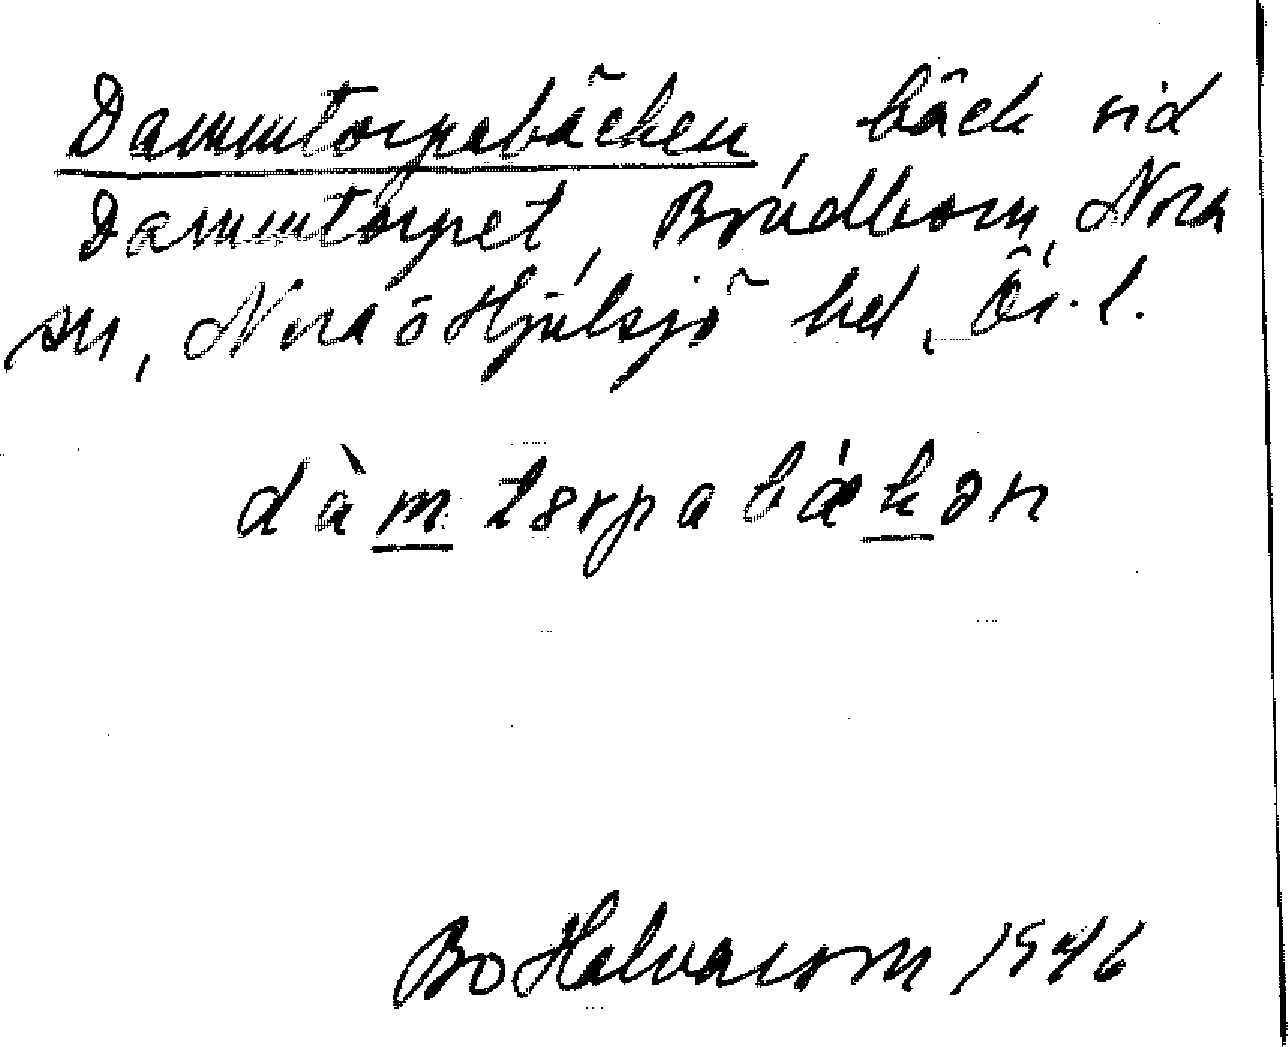 Dammtorpabäcken, bäck vid
Dammtorpet, Brudbom, Nora
sn, Nora o Hjulsjö hd, Ör. l.
dàmtɞrpabǽkən
Bo Halvarson 1946